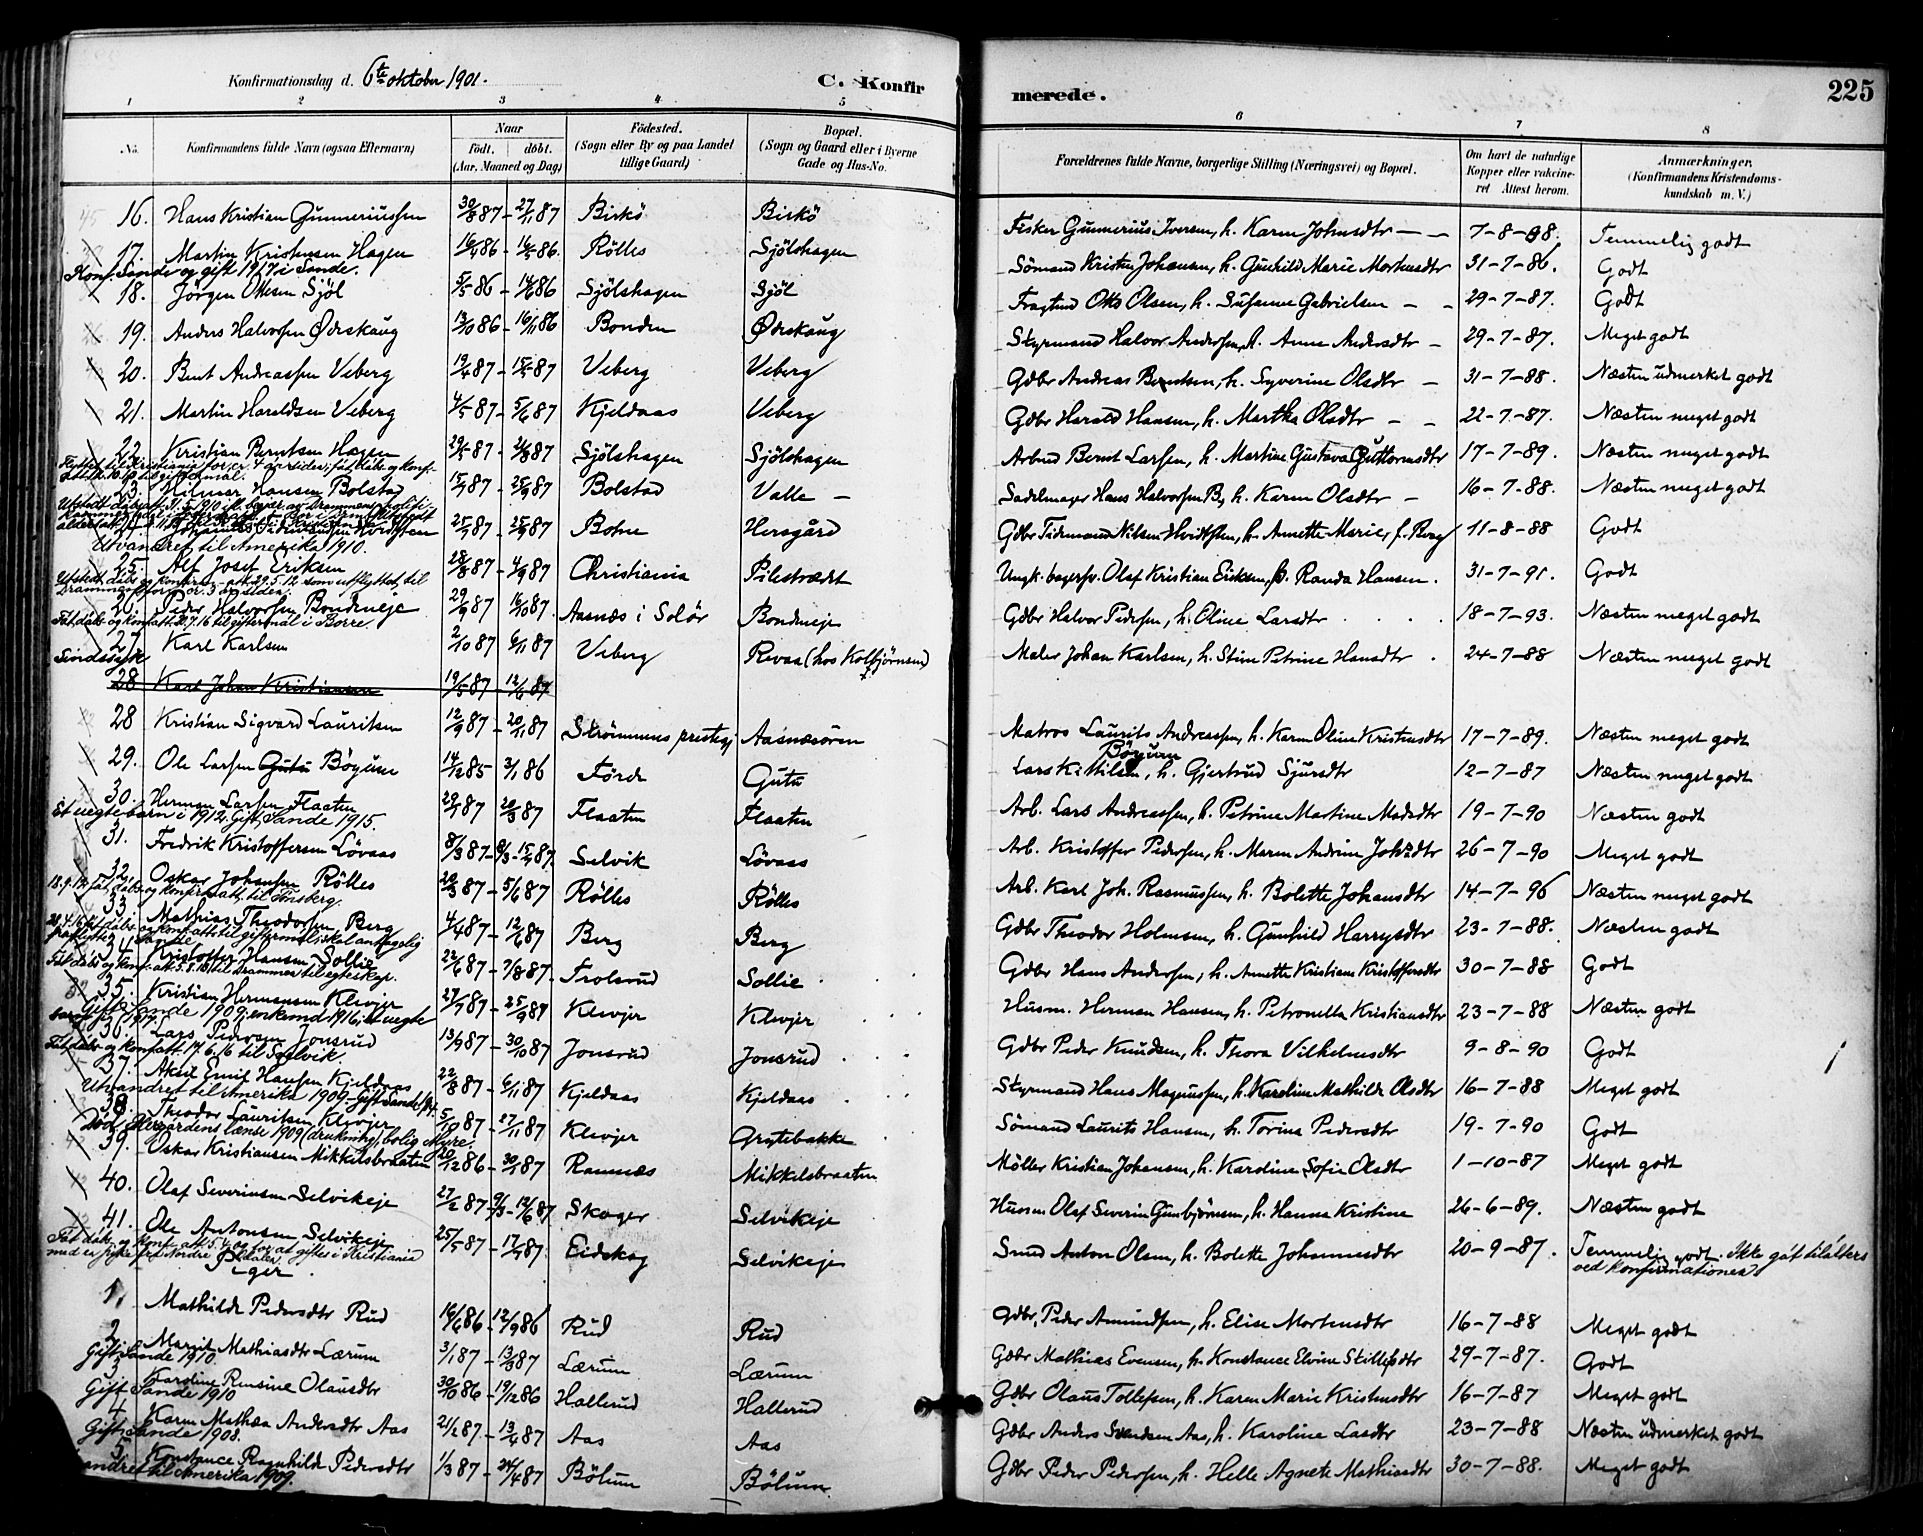 Konfirmationsdag d. 6te oktober 1901. C. Konfir
merede. 225
1 2 3 4 5 6 7 8
No. Konfirmandens fulde Navn (ogsaa Efternavn) Naar Födt. döbt. (Aar, Maaned og Dag) Födested. (Sogn eller By og paa Landet tillige Gaard) Bopæl. (Sogn og Gaard eller i Byerne Gade og Hus-No. Forældrenes fulde Navne, borgerlige Stilling (Næringsvei) og Bopæl. Om havt de naturlige Kopper eller vakcineret Attest herom. Anmærkninger. (Konfirmandens Kristendomskundskab m. V.)
16. Hans Kristian Gunneriussen 30/8 87 - 27/11 87 Birkö Birkö Fisker Gunnerius Iversen, h. Karen Johnsdtr 7-8-98. Temmelig godt
17. Martin Kristensen Hagen 16/4 86 - 16/5 86. Rölles Sjölshagen Sömand Kristen Johansen, h. Gunhild Marie Mortensdtr 31-7-86. Godt
Konf. Sande og gift 1917 i Sande.
18. Jörgen Ottesen Sjöl 5/5 86 - 14/6 86 Sjölshagen Sjöl Fragtmd Otto Olsen, h. Susanne Gabrielsen 29-7-87. Godt
19. Anders Halvorsen Ødeskaug 13/10 86 - 16/11 86 Bonden Ødeskaug Styrmand Halvor Andersen, h. Anne Andersdtr 29-7-87. Meget godt
20. Bent Andreassen Veberg 19/4 87 - 15/5 87 Veberg Veberg Gdbr Andreas Berntsen, h. Syverine Olsdtr 31-7-88. Næsten udmerket godt
21. Martin Haraldsen Veberg 4/5 87 - 5/6 87 Kjeldaas Veberg Gdbr Harald Hansen, h. Martha Olsdtr 22-7-87. Næsten meget godt
22. Kristian Berntsen Hagen 29/5 87 - 21/8 87 Sjölshagen Sjölshagen Arbmd Bernt Larsen, h. Martine Gustava Guttormsdtr 17-7-89. Næsten meget godt
23. Hilmar Hansen Bolstad 15/7 87 - 25/9 87 Bolstad Valle Sadelmager Hans Halvorsen B, h. Karen Olsdtr 16-7-88. Næsten meget godt
25/7 87 - 25/9 87 Bohne Hersgård Gdbr Tidemand Nilsen Hvidtsten, h. Annette Marie, f. Berg 11-8-88 Godt
Utvandret til Amerika 1910.
25. Alf Josef Eriksen 28/8 87 - 4/9 87 Christiania Pilestrædt Ungk. bagersv. Olaf Kristian Eriksen, p. Randa Hansen. 31-7-91. Godt
26. Peder Halvorsen Bondeneje 29/9 87 16/10 87. Aasnæs i Solör Bondeneje Gdbr Halvor Pedersen, h. Oline Larsdtr 18-7-93. Næsten meget godt
Fåt dåbs og konfatt. 21.7.16 til giftermål i Borre.
27. Karl Karlsen 2/10 87 6/11 87 Veberg Revaa (hos Kolbjørnsen) Maler Johan Karlsen, h. Stine Petrine Hansdtr 24-7-88 Næsten meget godt
Sindssyk
28 Karl Johan Kristiansen 19/5 87 - 12/6 87
28 Kristian Sigvard Lauritsen 12/9 87 - 20/11 87 Strömmens prestegj Aasnæsören Matros Laurits Andreassen, h. Karen Oline Kristensdtr 17-7-89. Næsten meget godt
29. Ole Larsen Gutu Böyum 14/12 85 3/1 86 Förde Gutu Lars Kittilsen Böyum, h. Gjertrud Sjursdtr 12-7-87 Næsten meget godt
30. Herman Larsen Flaaten 29/1 87 20/3 87 Flaaten Flaaten Arb. Lars Andreassen, h. Petrine Martine Madsdtr 19-7-90 Næsten godt
Et uegte barn i 1912. Gift, Sande 1915.
31. Fredrik Kristoffersen Lövaas 8/3 87 - 8/3 - 15/4 87. Selvik Lövaas Arb. Kristoffer Pedersen, h. Maren Andrine Johsdtr 26-7-90 Meget godt
32. Oskar Johansen Rölles 20/3 87 - 5/6 87 Rölles Rölles Arb. Karl Joh. Rasmussen, h. Bolette Johansdtr 14-7-96 Næsten meget godt
33 Mathias Theodorsen Berg 4/4 87 - 12/6 87 Berg Berg Gdbr Theodor Holmsen, h. Gunhild Harrysdtr 23-7-88. Næsten godt
34 Kristoffer Hansen Sollie 22/6 87 - 7/8 87. Trolsrud Sollie Gdbr Hans Andersen, h. Annette Kristiane Kristoffersdtr 30-7-88 Godt
Fåt dåbs og konf. att. 5.8.18 til Drammen til egteskap.
35. Kristian Hermansen Klevjer 27/7 87 - 25/9 87 Klevjer Klevjer Husm. Herman Hansen, h. Petronella Kristiansdtr 23-7-88 Næsten godt
Gift, Sande 1909; enkemd 1916; et uegte barn
36. Lars Pedersen Jonsrud 13/9 87 - 30/10 87 Jonsrud Jonsrud Gdbr Peder Knudsen, h. Thora Vilhelmsdtr 9-8-90 Godt
Fåt dåbs og konfatt. 17.6.16 til Selvik.
37. Aksel Emil Hansen Kjeldaas 22/8 87 - 6/11 87 Kjeldaas Kjeldaas Styrmand Hans Magnussen, h. Karoline Mathilde Olsdtr 16-7-88 Meget godt
Utvandret til Amerika 1909.
38. Theodor Lauritsen Klevjer 5/10 87 - 27/11 87 Klevjer Grytebakke Sömand Laurits Hansen, h. Torina Pedersdtr 19-7-90 Godt
39. Oskar Kristiansen Mikkelsbraaten 20/12 86 - 30/1 87 Ramnæs Mikkelsbraaten Möller Kristian Johansen, h. Karoline Sofie Olsdtr 1-10-87 Meget godt
40. Olaf Severinsen Selvikeje 27/2 87 - 9/3 - 12/6 87 Skoger Selvikeje Husm Olaf Severin Gunbjörnsen, h. Hanna Kristine 26-6-89. Næsten godt
41. Ole Antonsen Selvikeje 25/5 87 - 17/7 87. Eidskog Selvikeje Smed Anton Olsen, h. Bolette Johannesdtr 20-9-87. Temmelig godt. Ikke gåt tilalters ved konfirmationen
Piger.
1. Mathilde Pedersdtr Rud 16/6 86 - 12/9 86 Rud Rud Gdbr Peder Amundsen, h. Elise Mortensdtr 16-7-88 Meget godt
2 Marit Mathiasdtr Lærum 3/1 87 - 13/3 87 Lærum Lærum Gdbr Mathias Evensen, h. Konstance Elvine Stillefsdtr 29-7-87. Godt
Gift, Sande 1910.
3 Karoline Pensine Olausdtr 30/10 86 - 19/12 86 Hallerud Hallerud Gdbr Olaus Tollefsen, h. Karen Marie Kristensdtr 16-7-87 Meget godt
Gift Sande 1910
4 Karen Mathea Andersdtr Aas 21/2 87 - 13/4 87 Aas Aas Gdbr Anders Svendsen Aas, h. Karoline Larsdtr 23-7-88 Næsten udmerket godt
Gift, Sande 1908.
5 Konstance Ragnhilde Pedersdtr 1/3 87 - 24/4 87 Bölum Bölum Gdbr Peder Pedersen, h. Helle Agnete Mathiasdtr 30-7-88. Meget godt
andret til Amerika 1909.